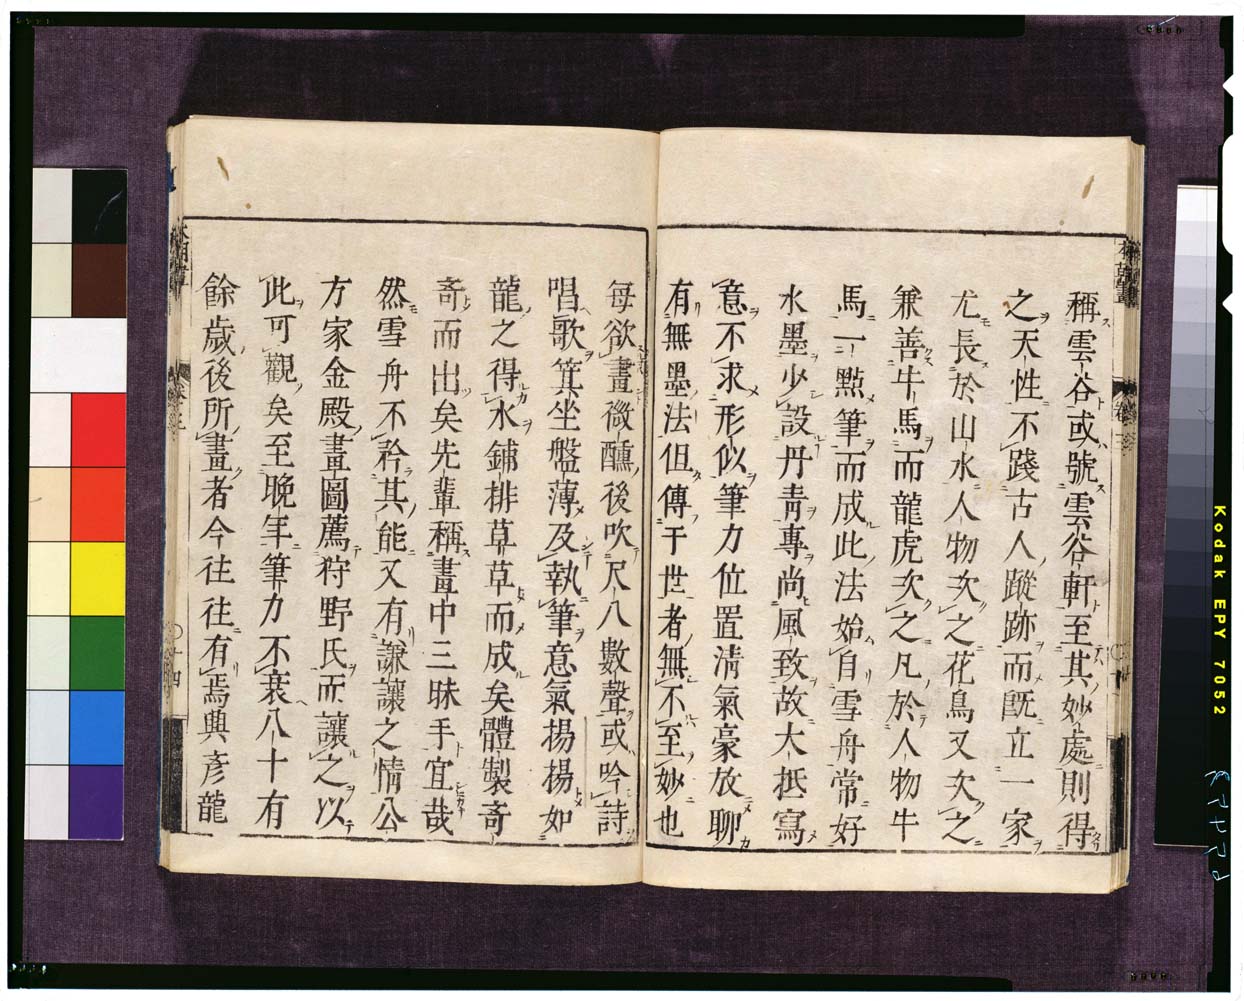 稱雲谷或號雲谷軒至其妙處則得
之天性不踐古人蹤跡而既立一家
尤長於山水人物次之花鳥又次之
兼善牛馬而龍虎次之凡於人物牛
馬一點筆而成此法始自雪舟常好
水墨少設丹青專尚風致故大抵寫
意不求形似筆力位置清氣豪放聊
有無墨法但傳于世者無不至妙也
每欲畫微醺後吹尺八數聲或吟詩
唱歌箕坐盤薄及執筆意氣揚揚如
龍之得水鋪排草草而成矣體製奇
奇而出矣先輩稱畫中三昧手宜哉
然雪舟不矜其能又有謙讓之情公
方家金殿畫圖薦狩野氏而讓之以
此可觀矣至晚年筆力不衰八十有
餘歲後所畫者今往往有焉與彥龍
十四
Kodak EPY 7052